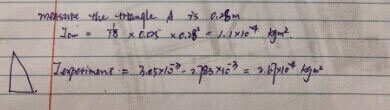 measure the triangle A is 0.28m
Icm = 1/18 × 0.025 × 0.28² = 1.1×10⁻⁴ kgm².
I experiment = 3.05×10⁻³ - 2.783×10⁻³ = 2.67×10⁻⁴ kgm²